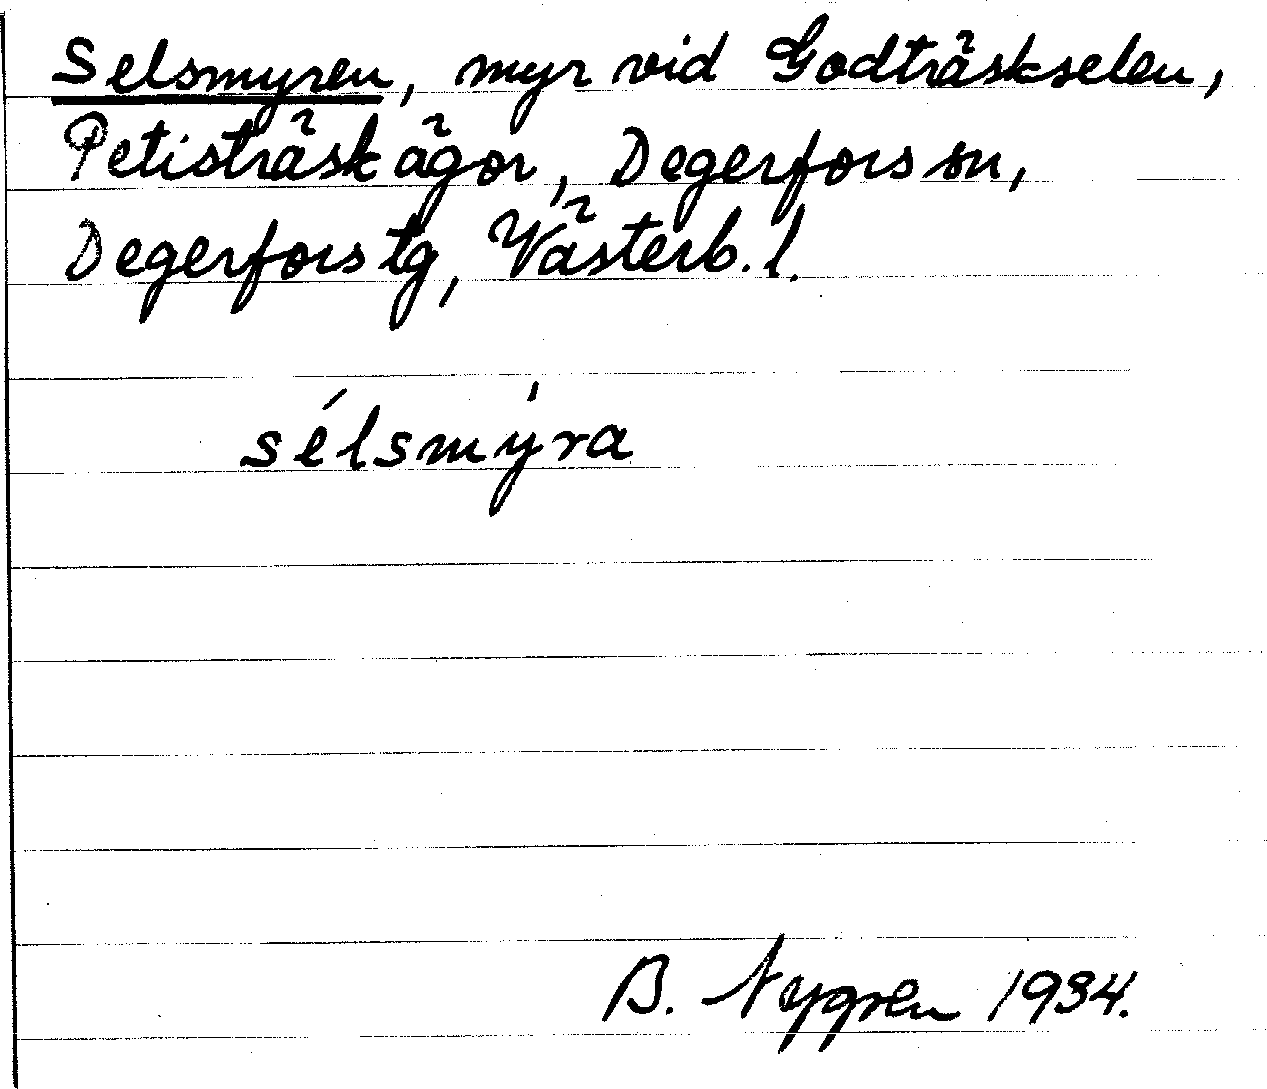 Selsmyren, myr vid Godträskselen,
Petisträsk ägor, Degerfors sn,
Degerfors tg, Västerb. l.
sélsmy̍ra
B. Nygren 1934.